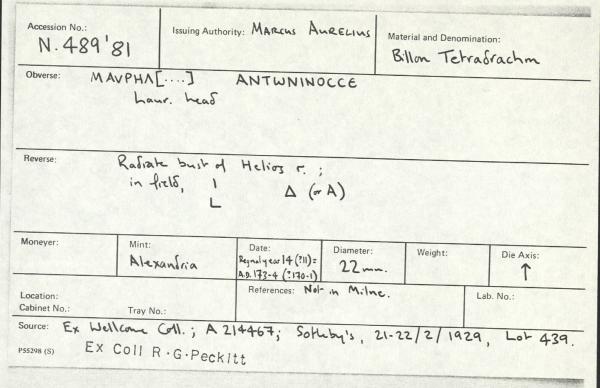 Accession No.: N.489'81
Issuing Authority: MARCUS AURELIUS
Material and Denomination: Billon Tetradrachm
Obverse: MAVPHA[....] ANTWNINOCCE
laur. head
Reverse: Radiate bust of Helios r. ;
in field, I Δ (or A)
L
Moneyer:
Mint: Alexandria
Date: Regnal year 14 (?11) =
A.D. 173-4 (?170-1)
Diameter: 22 mm.
Weight:
Die Axis: ↑
Location:
Cabinet No.: Tray No.:
References: Not in Milne.
Lab. No.:
Source: Ex Wellcome Coll.; A 214467; Sotheby's, 21-22/2/1929, Lot 439.
P55298 (S) Ex Coll R.G.Peckitt